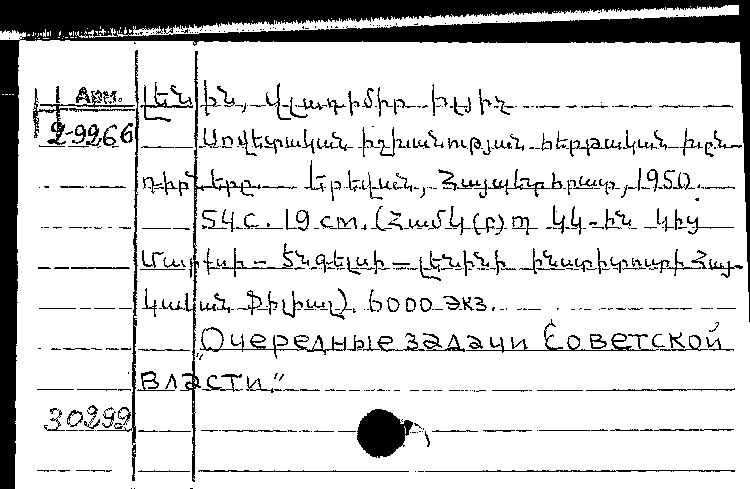 Арм. Լենին, Վլադիմիր Իլյիչ
2-9266 Սովետական իշխանության հերթական խըն-
դիրները. Երեվան, Հայպետհրատ, 1950.
54 с. 19 cm. (Համկ(բ)պ կկ-ին կից
Մարքսի-Էնգելսի-Լենինի ինստիտուտի Հայ-
կական Ֆիլիալ). 6000 экз.
"Очередные задачи Советской
власти."
30292